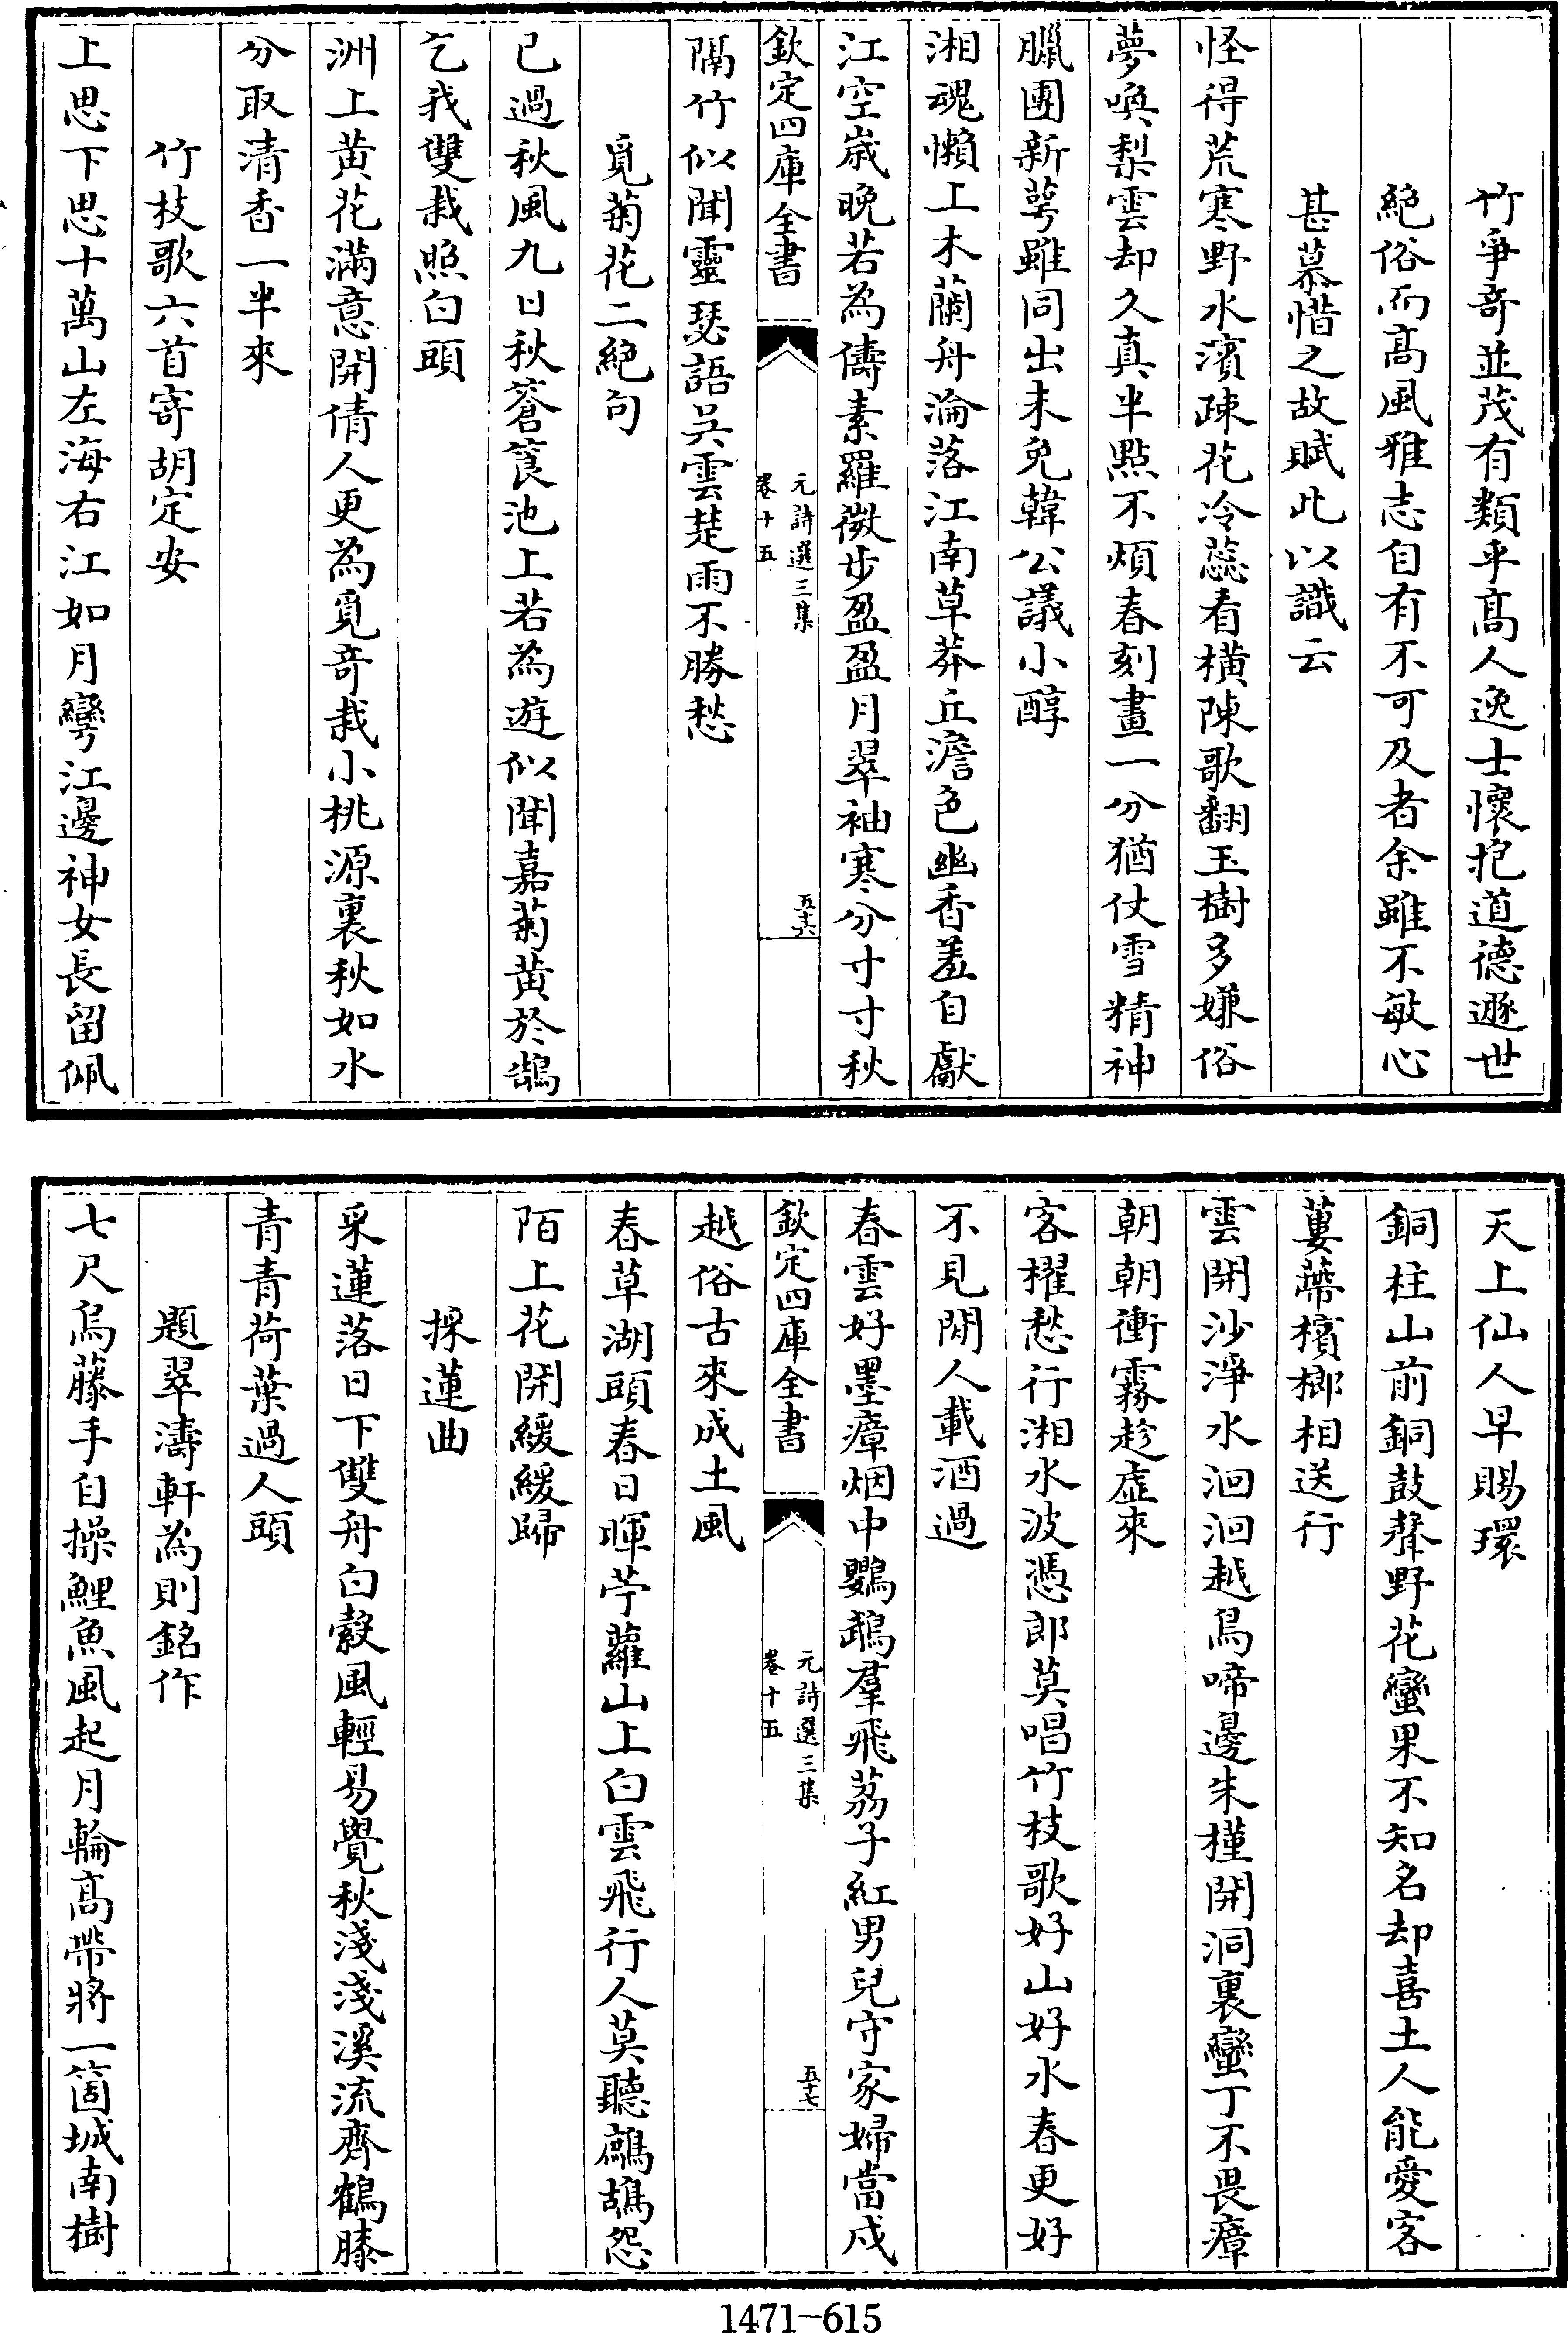 竹爭奇並茂有類乎髙人逸士懷抱道德遯世
絕俗而髙風雅志自有不可及者余雖不敏心
甚慕惜之故賦此以識云
怪得荒寒野水濱疎花冷蕊看橫陳歌翻玉樹多嫌俗
夢喚梨雲却久真半點不煩春刻畫一分猶仗雪精神
臘團新萼雖同出未免韓公議小醇
湘魂懶上木蘭舟淪落江南草莽丘澹色幽香羞自獻
江空嵗晚若為儔素羅微步盈盈月翠袖寒分寸寸秋
欽定四庫全書
元詩選三集
卷十五
五十六
隔竹似聞靈瑟語吳雲楚雨不勝愁
覓菊花二絕句
已過秋風九日秋蒼筤池上若為遊似聞嘉菊黄於鵠
乞我雙栽照白頭
洲上黄花滿意開倩人更為覓奇栽小桃源裏秋如水
分取清香一半來
竹枝歌六首寄胡定安
上思下思十萬山左海右江如月彎江邊神女長留佩
天上仙人早賜環
銅柱山前銅鼓聲野花蠻果不知名却喜土人能愛客
蔞蔕檳榔相送行
雲開沙淨水洄洄越鳥啼邊朱槿開洞裏蠻丁不畏瘴
朝朝衝霧趁虛來
客櫂愁行湘水波憑郎莫唱竹枝歌好山好水春更好
不見閒人載酒過
春雲好墨瘴烟中鸚鵡羣飛荔子紅男兒守家婦當戍
欽定四庫全書
元詩選三集
卷十五
五十七
越俗古來成土風
春草湖頭春日暉苧蘿山上白雲飛行人莫聽鷓鴣怨
陌上花開緩緩歸
採蓮曲
采蓮落日下雙舟白縠風輕易覺秋淺淺溪流齊鶴膝
青青荷葉過人頭
題翠濤軒為則銘作
七尺烏藤手自操鯉魚風起月輪髙帶將一箇城南樹
1471-615